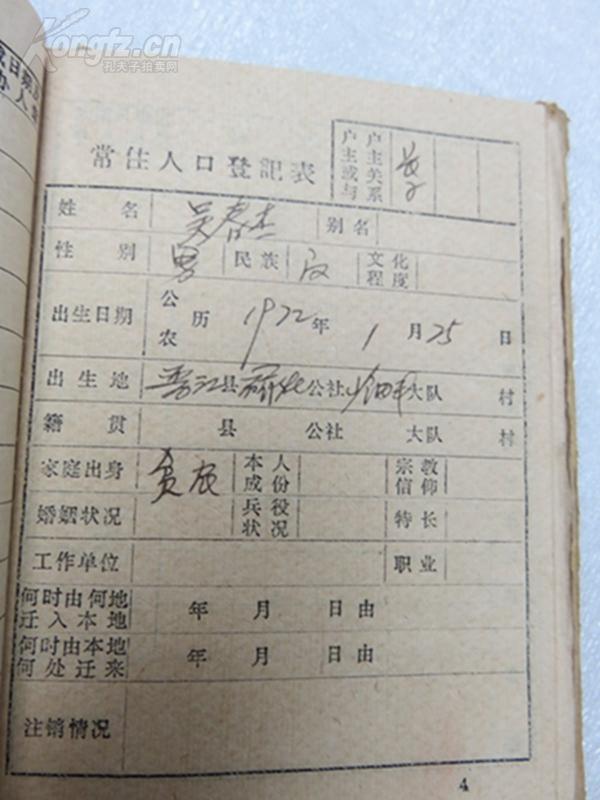 Kongfz.cn
孔夫子拍卖网
常住人口登记表
户主或与户主关系
姓名 吴春杰 别名
性别 男 民族 汉 文化程度
出生日期 公农历 1972年 1月25日
出生地 晋江县 公社 大队 村
籍贯 县 公社 大队 村
家庭出身 贫农 本人成份 宗教信仰
婚姻状况 兵役状况 特长
工作单位 职业
何时由何地迁入本地 年 月 日由
何时由本地何处迁来 年 月 日由
注销情况
4